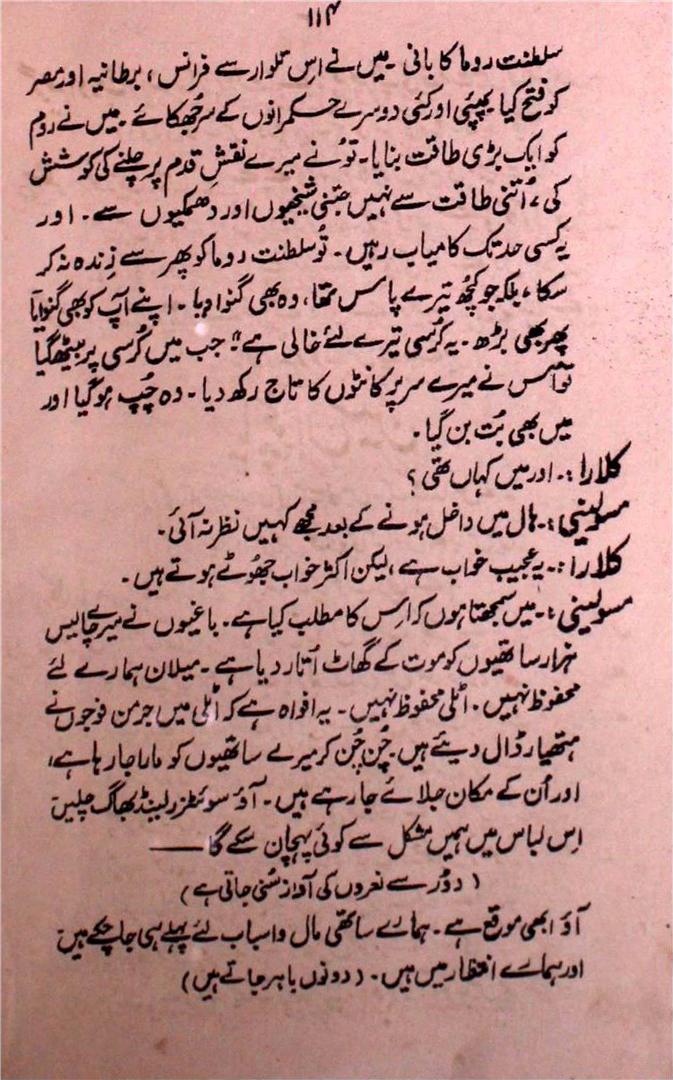 ۱۱۴
سلطنت روما کا بانی ۔ میں نے اس تلوار سے فرانس، برطانیہ اور مصر
کو فتح کیا۔ پمپئی اور کئی دوسرے حکمرانوں کے سر جھکائے۔ میں نے روم
کو ایک بڑی طاقت بنایا۔ تُو نے میرے نقشِ قدم پر چلنے کی کوشش
کی، اُتنی طاقت سے نہیں جتنی شیخیوں اور دھمکیوں سے ۔ اور
یہ کسی حد تک کامیاب رہیں۔ تُو سلطنت روما کو پھر سے زندہ نہ کر
سکا، بلکہ جو کچھ تیرے پاس تھا، وہ بھی گنوا دیا۔ اپنے آپ کو بھی گنوایا
پھر بھی بڑھ ۔ یہ کرسی تیرے لئے خالی ہے"۔ جب میں کُرسی پر بیٹھ گیا
تو اُس نے میرے سر پر کانٹوں کا تاج رکھ دیا۔ وہ چُپ ہو گیا اور
میں بھی بُت بن گیا۔
کلارا :۔ اور میں کہاں تھی ؟
مسولینی :۔ ہال میں داخل ہونے کے بعد مجھے کہیں نظر نہ آئی۔
کلارا :۔ یہ عجیب خواب ہے، لیکن اکثر خواب جھوٹے ہوتے ہیں۔
مسولینی :۔ میں سمجھتا ہوں کہ اس کا مطلب کیا ہے۔ باغیوں نے میرے چالیس
ہزار ساتھیوں کو موت کے گھاٹ اُتار دیا ہے۔ میلان ہمارے لئے
محفوظ نہیں۔ اٹلی محفوظ نہیں۔ یہ افواہ ہے کہ اٹلی میں جرمن فوجوں نے
ہتھیار ڈال دیئے ہیں۔ چُن چُن کر میرے ساتھیوں کو مارا جا رہا ہے،
اور اُن کے مکان جلائے جا رہے ہیں۔ آؤ سوئٹزرلینڈ بھاگ چلیں
اِس لباس میں ہمیں مشکل سے کوئی پہچان سکے گا ——
( دُور سے نعروں کی آواز سُنی جاتی ہے )
آؤ ابھی موقع ہے۔ ہمارے ساتھی مال و اسباب لئے پہلے ہی جا چکے ہیں
اور ہمارے انتظار میں ہیں۔ (دونوں باہر جاتے ہیں)